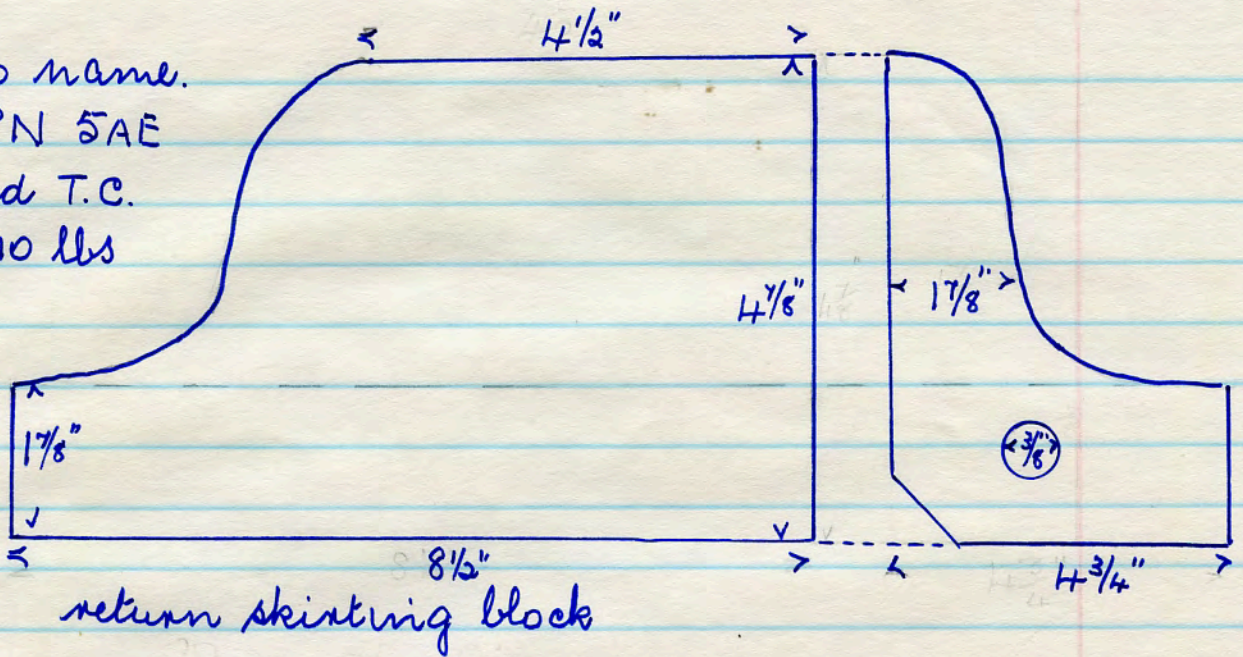 4 1/2"
name.
N 5AE
T.C.
lbs
4 7/8"
1 7/8"
1 7/8"
3/8"
8 1/2"
4 3/4"
return skirting block